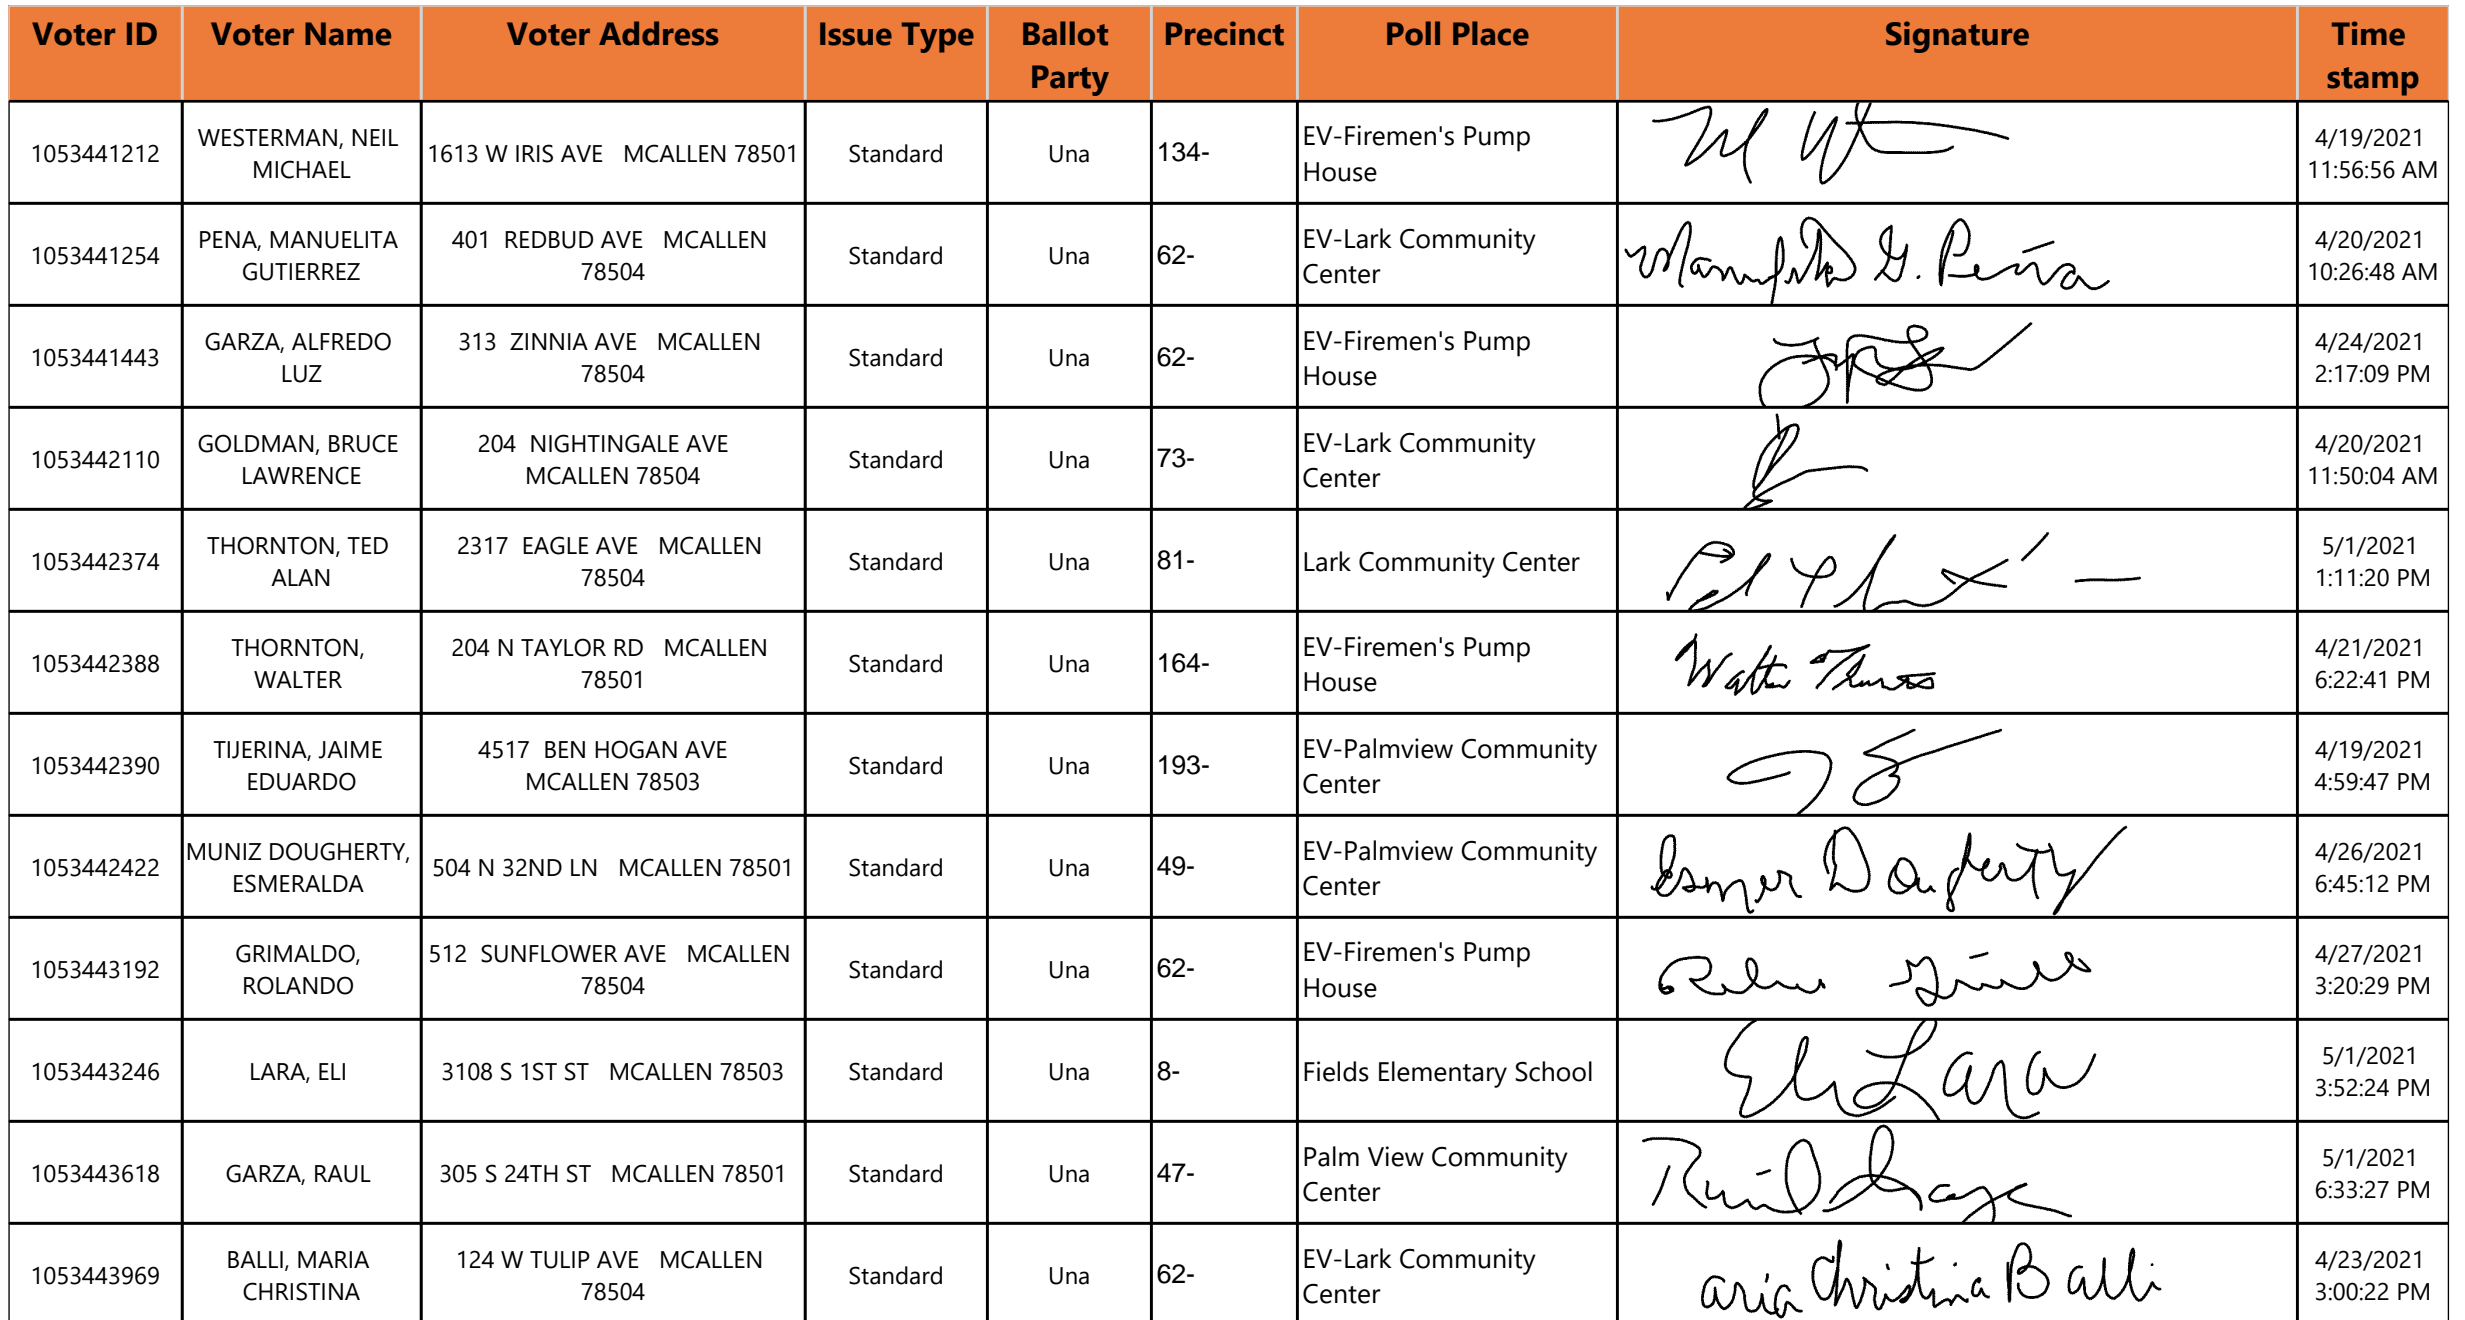 Voter ID Voter Name Voter Address Issue Type Ballot Party Precinct Poll Place Signature Time stamp
1053441212 WESTERMAN, NEIL MICHAEL 1613 W IRIS AVE MCALLEN 78501 Standard Una 134- EV-Firemen's Pump House 4/19/2021 11:56:56 AM
1053441254 PENA, MANUELITA GUTIERREZ 401 REDBUD AVE MCALLEN 78504 Standard Una 62- EV-Lark Community Center Manuelita G. Peña 4/20/2021 10:26:48 AM
1053441443 GARZA, ALFREDO LUZ 313 ZINNIA AVE MCALLEN 78504 Standard Una 62- EV-Firemen's Pump House 4/24/2021 2:17:09 PM
1053442110 GOLDMAN, BRUCE LAWRENCE 204 NIGHTINGALE AVE MCALLEN 78504 Standard Una 73- EV-Lark Community Center 4/20/2021 11:50:04 AM
1053442374 THORNTON, TED ALAN 2317 EAGLE AVE MCALLEN 78504 Standard Una 81- Lark Community Center 5/1/2021 1:11:20 PM
1053442388 THORNTON, WALTER 204 N TAYLOR RD MCALLEN 78501 Standard Una 164- EV-Firemen's Pump House Walter Thornton 4/21/2021 6:22:41 PM
1053442390 TIJERINA, JAIME EDUARDO 4517 BEN HOGAN AVE MCALLEN 78503 Standard Una 193- EV-Palmview Community Center 4/19/2021 4:59:47 PM
1053442422 MUNIZ DOUGHERTY, ESMERALDA 504 N 32ND LN MCALLEN 78501 Standard Una 49- EV-Palmview Community Center Esmer Dougherty 4/26/2021 6:45:12 PM
1053443192 GRIMALDO, ROLANDO 512 SUNFLOWER AVE MCALLEN 78504 Standard Una 62- EV-Firemen's Pump House 4/27/2021 3:20:29 PM
1053443246 LARA, ELI 3108 S 1ST ST MCALLEN 78503 Standard Una 8- Fields Elementary School Eli Lara 5/1/2021 3:52:24 PM
1053443618 GARZA, RAUL 305 S 24TH ST MCALLEN 78501 Standard Una 47- Palm View Community Center Raul Garza 5/1/2021 6:33:27 PM
1053443969 BALLI, MARIA CHRISTINA 124 W TULIP AVE MCALLEN 78504 Standard Una 62- EV-Lark Community Center aria Christina Balli 4/23/2021 3:00:22 PM